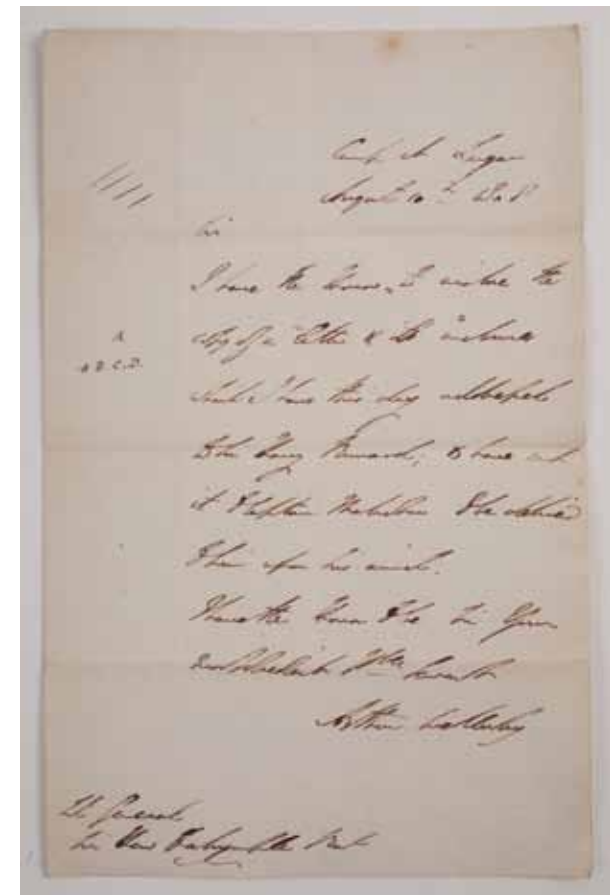 Camp at Lugar
August 10th 1808
Sir
I have the honor to enclose the
A
copy of a letter & its enclosures
B.C.D.
which I have this day addressed
to Sir Harry Burrard, & have
it to Captain Malcolm to be delivered
to him upon his arrival.
I have the honor to be Sir Your
most obedient Hble Servant
Arthur Wellesley
Lt General
Sir Hew Dalrymple Bart